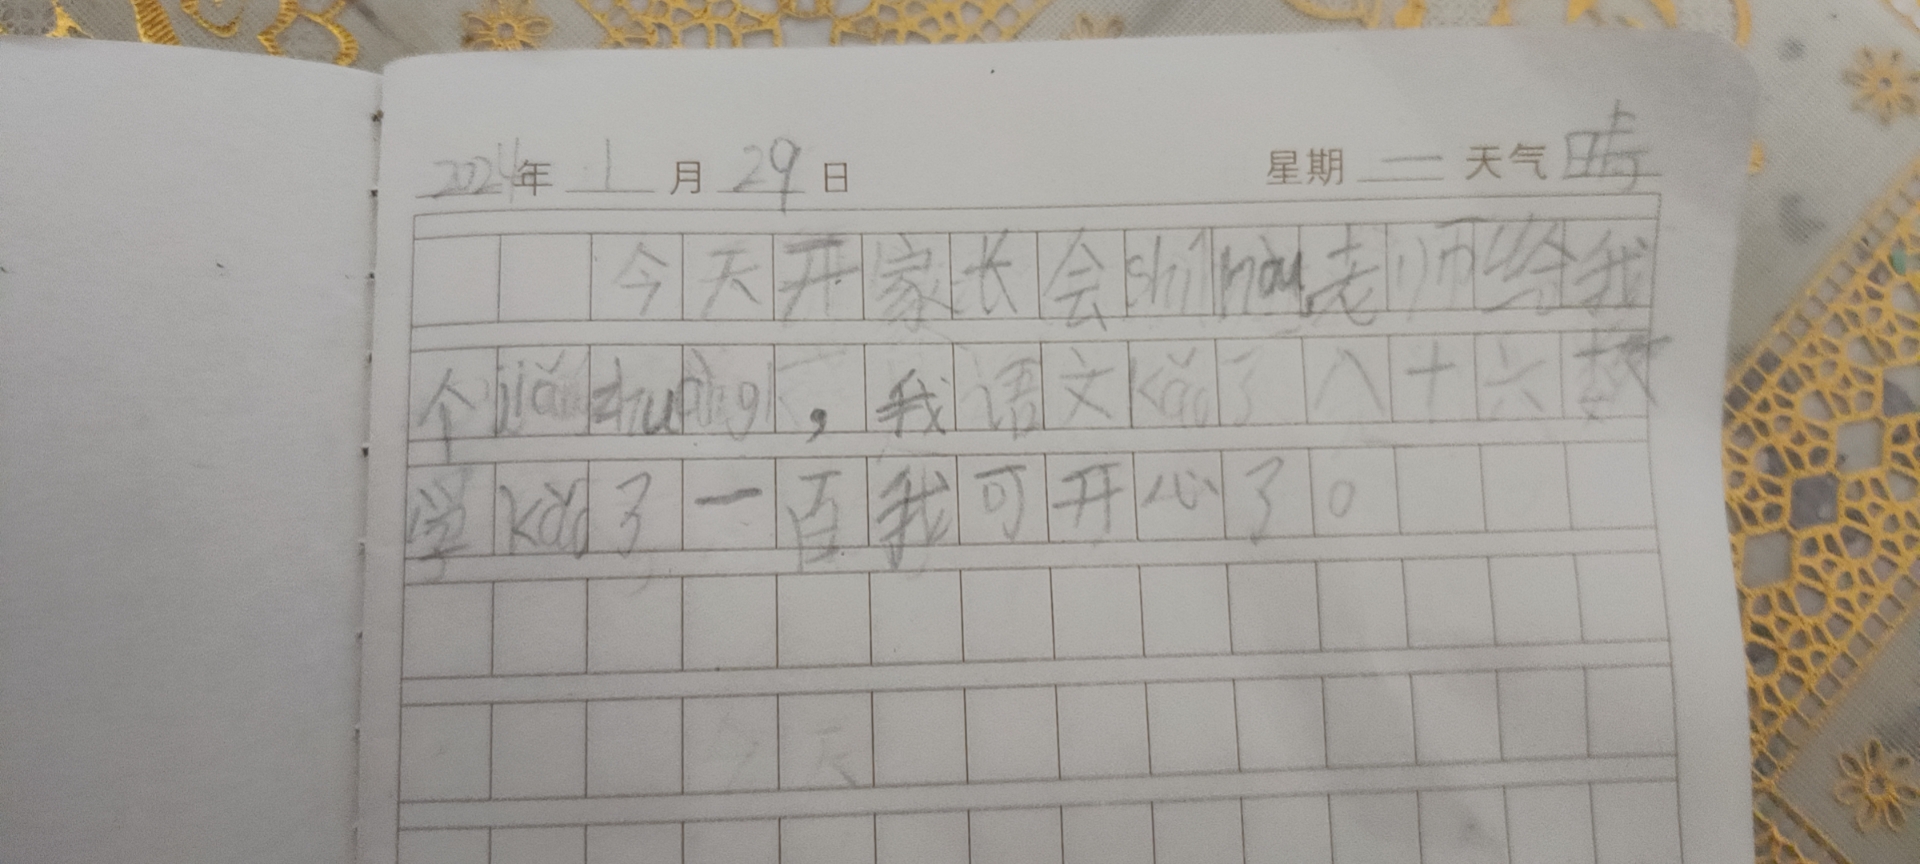 2024年 1 月 29 日 星期 二 天气 晴
今天开家长会shí hòu老师给我
个jiǎng zhuàng，我语文kǎo了八十六 数
学kǎo了一百我可开心了。
今天